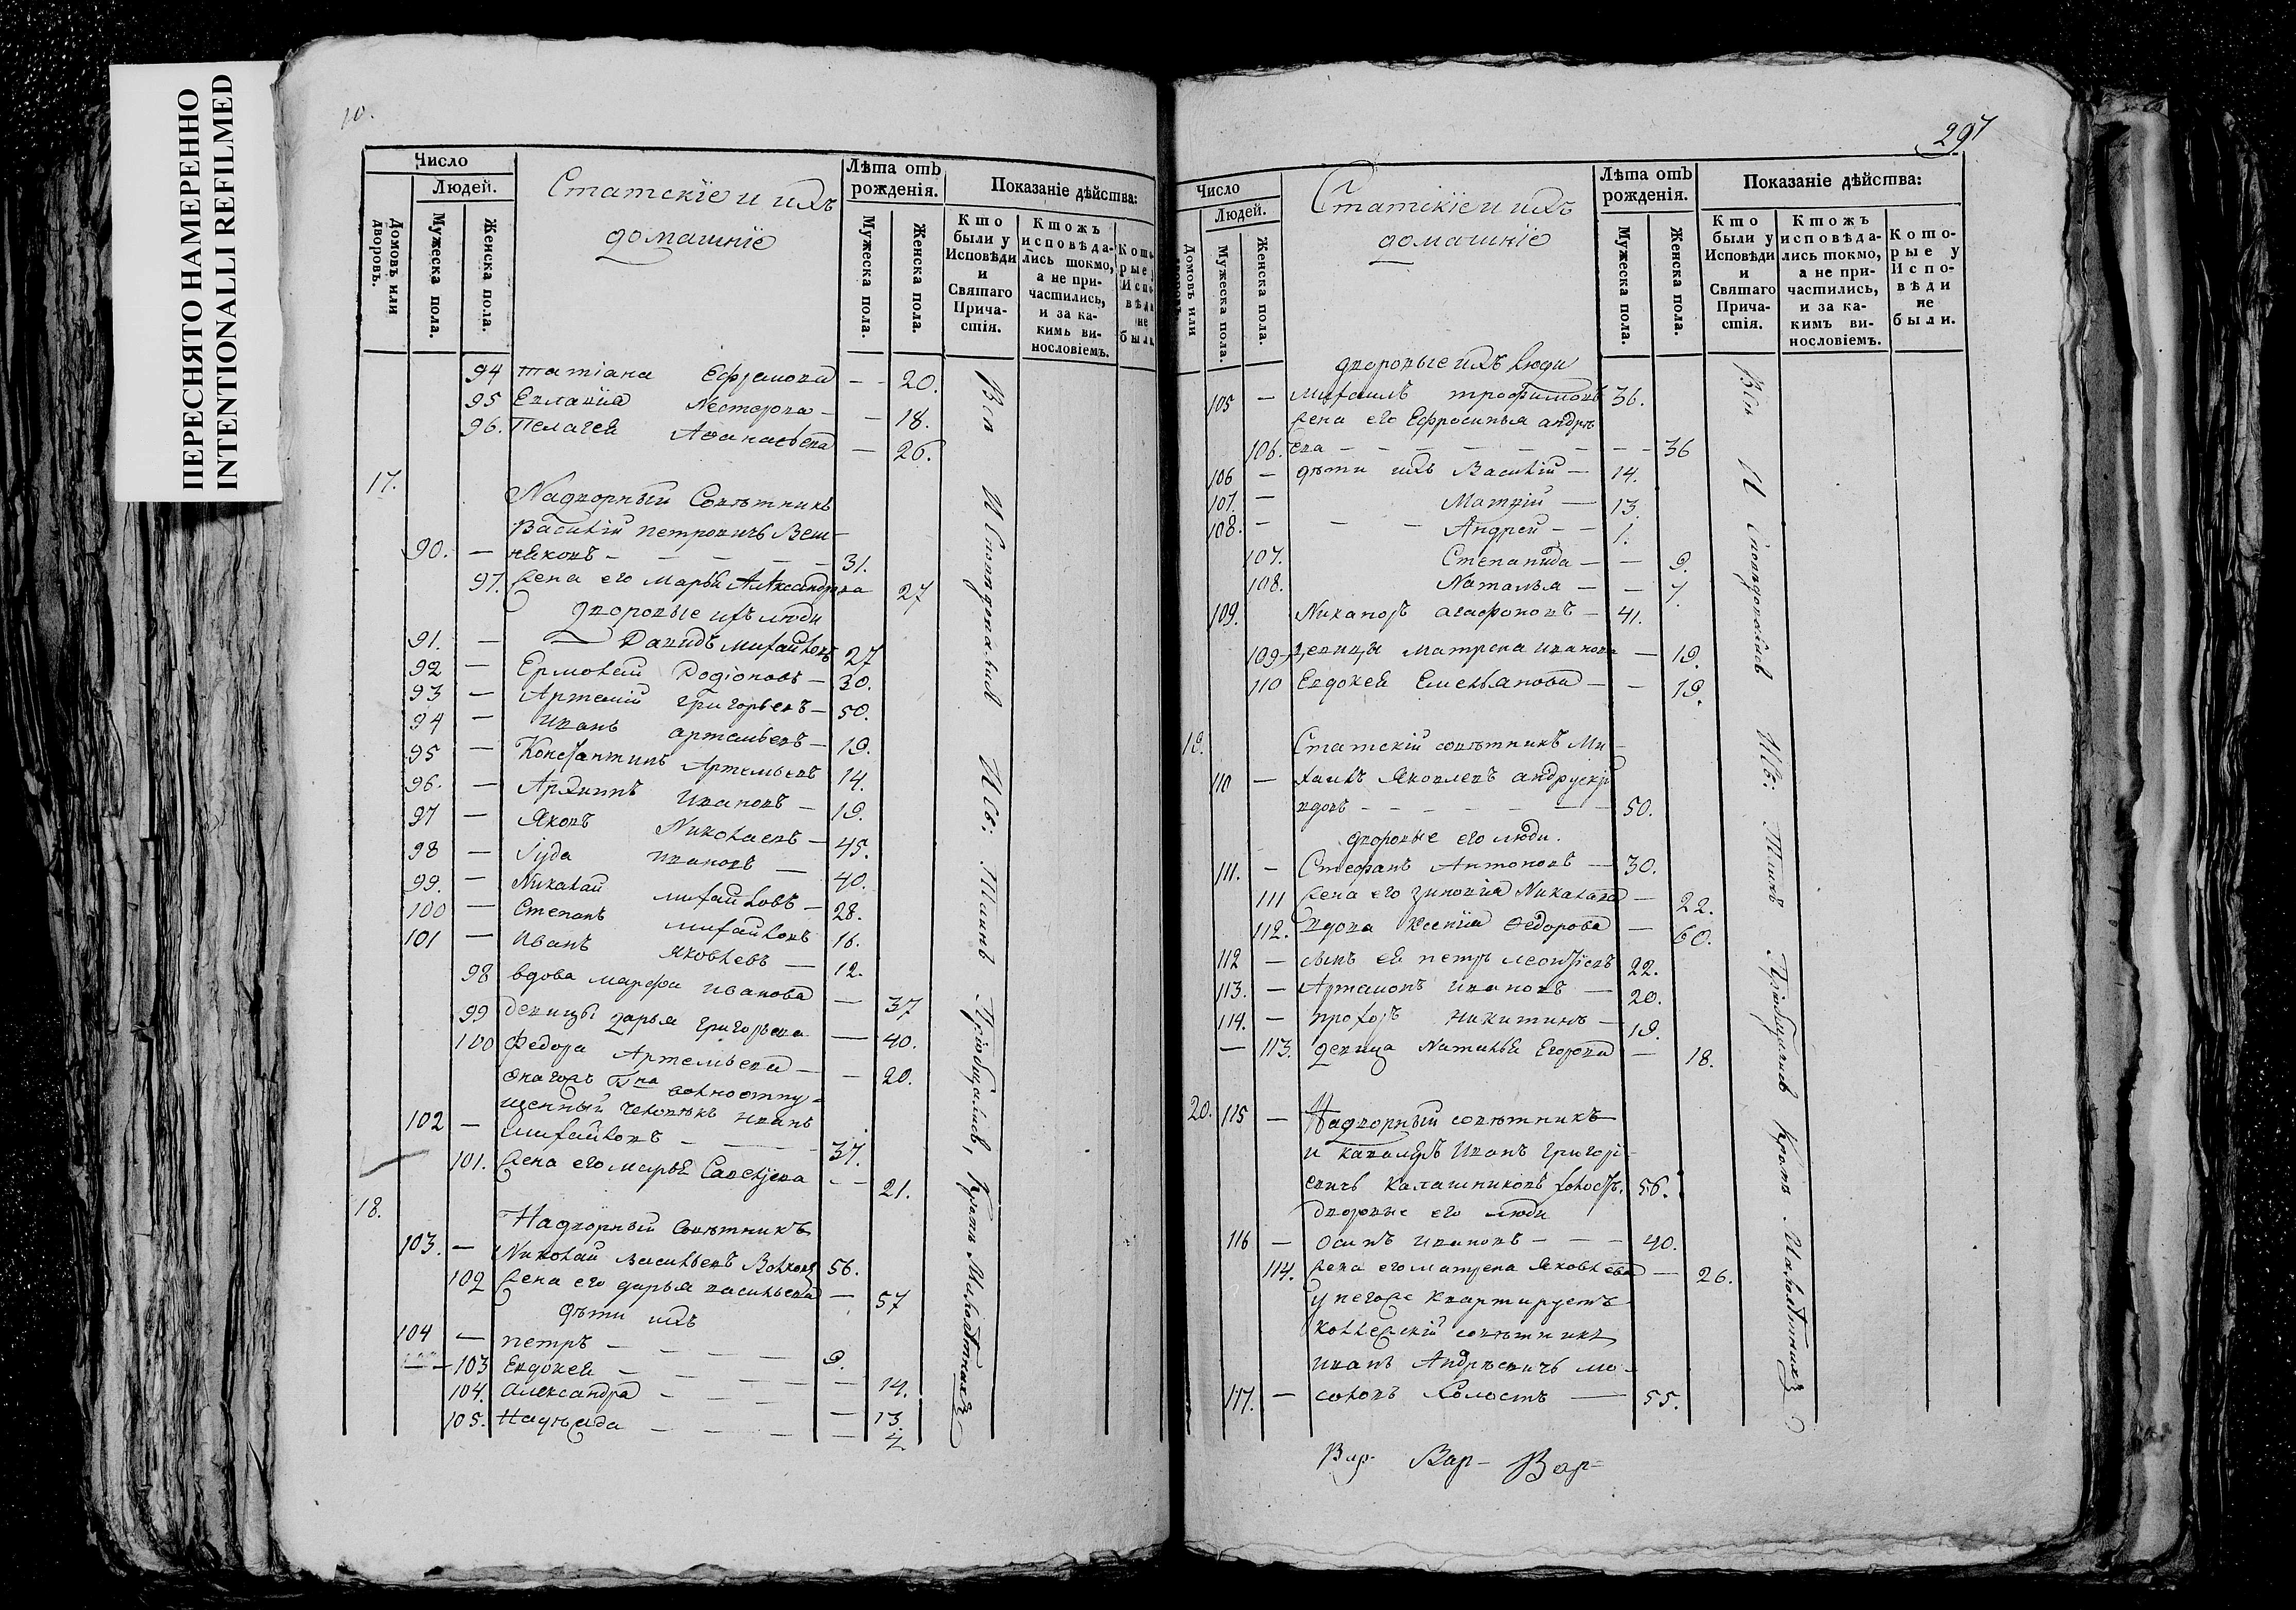 ПЕРЕСНЯТО НАМЕРЕННО
INTENTIONALLI REFILMED
10.
Число
Людей.
Домовъ или дворовъ.
Мужеска пола.
Женска пола.
Статскіе и ихъ
домашніе
Лѣта отъ рожденія.
Мужеска пола.
Женска пола.
Показаніе дѣйства:
Кто были у Исповѣди и Святаго Причастія.
Ктожъ исповѣдались токмо, а не причастились, и за какимъ винословіемъ.
94 татіана Ефремова — 20.
95 Евланія Нестерова — — 18.
96. Пелагея Аѳанасьева — 26.
17. Надворный Совѣтникъ
Василій петровичъ Веш-
90. — няковъ — — — — 31.
97. жена его марья Александрова 27
дворовые ихъ люди
91. — Давидъ михайловъ 27
92 — Ермолай Родіоновъ — 30.
93 — Артемій григорьевъ — 50.
94 — иванъ артемьевъ — 19.
95 — Константинъ Артемьевъ 14.
96. — Архипъ Ивановъ — 19.
97 — Яковъ Николаевъ — 45.
98 — Іуда ивановъ — 40.
99. — Николай михайловъ — 28.
100 — Степанъ михайловъ 16.
101 — Иванъ яковлевъ — 12.
98 вдова марфа иванова — 37
99 девицы дарья григорьева — 40.
100 Федора Артемьева — — 20.
онагожъ Гна вольноотпу-
щенный человѣкъ иванъ
102 — михайловъ — — 37.
101. жена его марья Савельева — — 21.
18. Надворный Совѣтникъ
103. — Николай васильевъ Волковъ 56.
102 жена его дарья васильева — 57
дѣти ихъ
104 — петръ — — — — 9.
— 103 Евдокея — — — — 14.
104. александра — — — — 13.
105. Надѣжда — — — — 7.
Вси Исповѣдовались И Св: Таинъ Пріобщались, кромѣ Малолѣтныхъ
297
Число
Людей.
Домовъ или
Мужеска пола.
Женска пола.
Статскіе и ихъ
домашніе
Лѣта отъ рожденія.
Мужеска пола.
Женска пола.
Показаніе дѣйства:
Кто были у Исповѣди и Святаго Причастія.
Ктожъ исповѣдались токмо, а не причастились, и за какимъ винословіемъ.
Которые у Исповѣди не были.
дворовые ихъ люди
105 — михаилъ трофимовъ 36.
жена его Ефросинья андрѣ
106. ева — — — — — — 36
106 — дѣти ихъ Василій — 14.
107. — Матвій — 13.
108. — — — Андрей — — 1.
107. Степанида — — 9.
108. Наталья — — 7.
109. Никаноръ агафоновъ — 41.
109 девицы матрена иванова — 19.
110 Евдокея Емельянова — — 19.
19. Статскій совѣтникъ Ми-
110 — хаилъ Яковлевъ андрускій
вдовъ — — — — — 50.
дворовые его люди.
111. — Стефанъ Антоновъ — 30.
111 жена его зиновія Никалаева — 22.
112. вдова Ксенія Федорова — 60.
112 — сынъ ея петръ леонтіевъ 22.
113. — Артамонъ ивановъ — 20.
114. — прохоръ никитинъ — 19.
— 113. девица Наталья Егорова — 18.
20. 115 — Надворный совѣтникъ
и кавалеръ Иванъ григорі-
евичъ калашниковъ холостъ. 56.
дворовые его люди
116 — осипъ ивановъ — — — 40.
114. жена его матрена яковлева — 26.
у негоже квартируетъ
коллежскій совѣтникъ
иванъ Андрѣевичъ мо-
117. — соловъ холостъ — 55.
Вси Исповѣдовались И Св: Таинъ Пріобщались кромѣ Малолѣтныхъ
Вар- Вар- Вар-